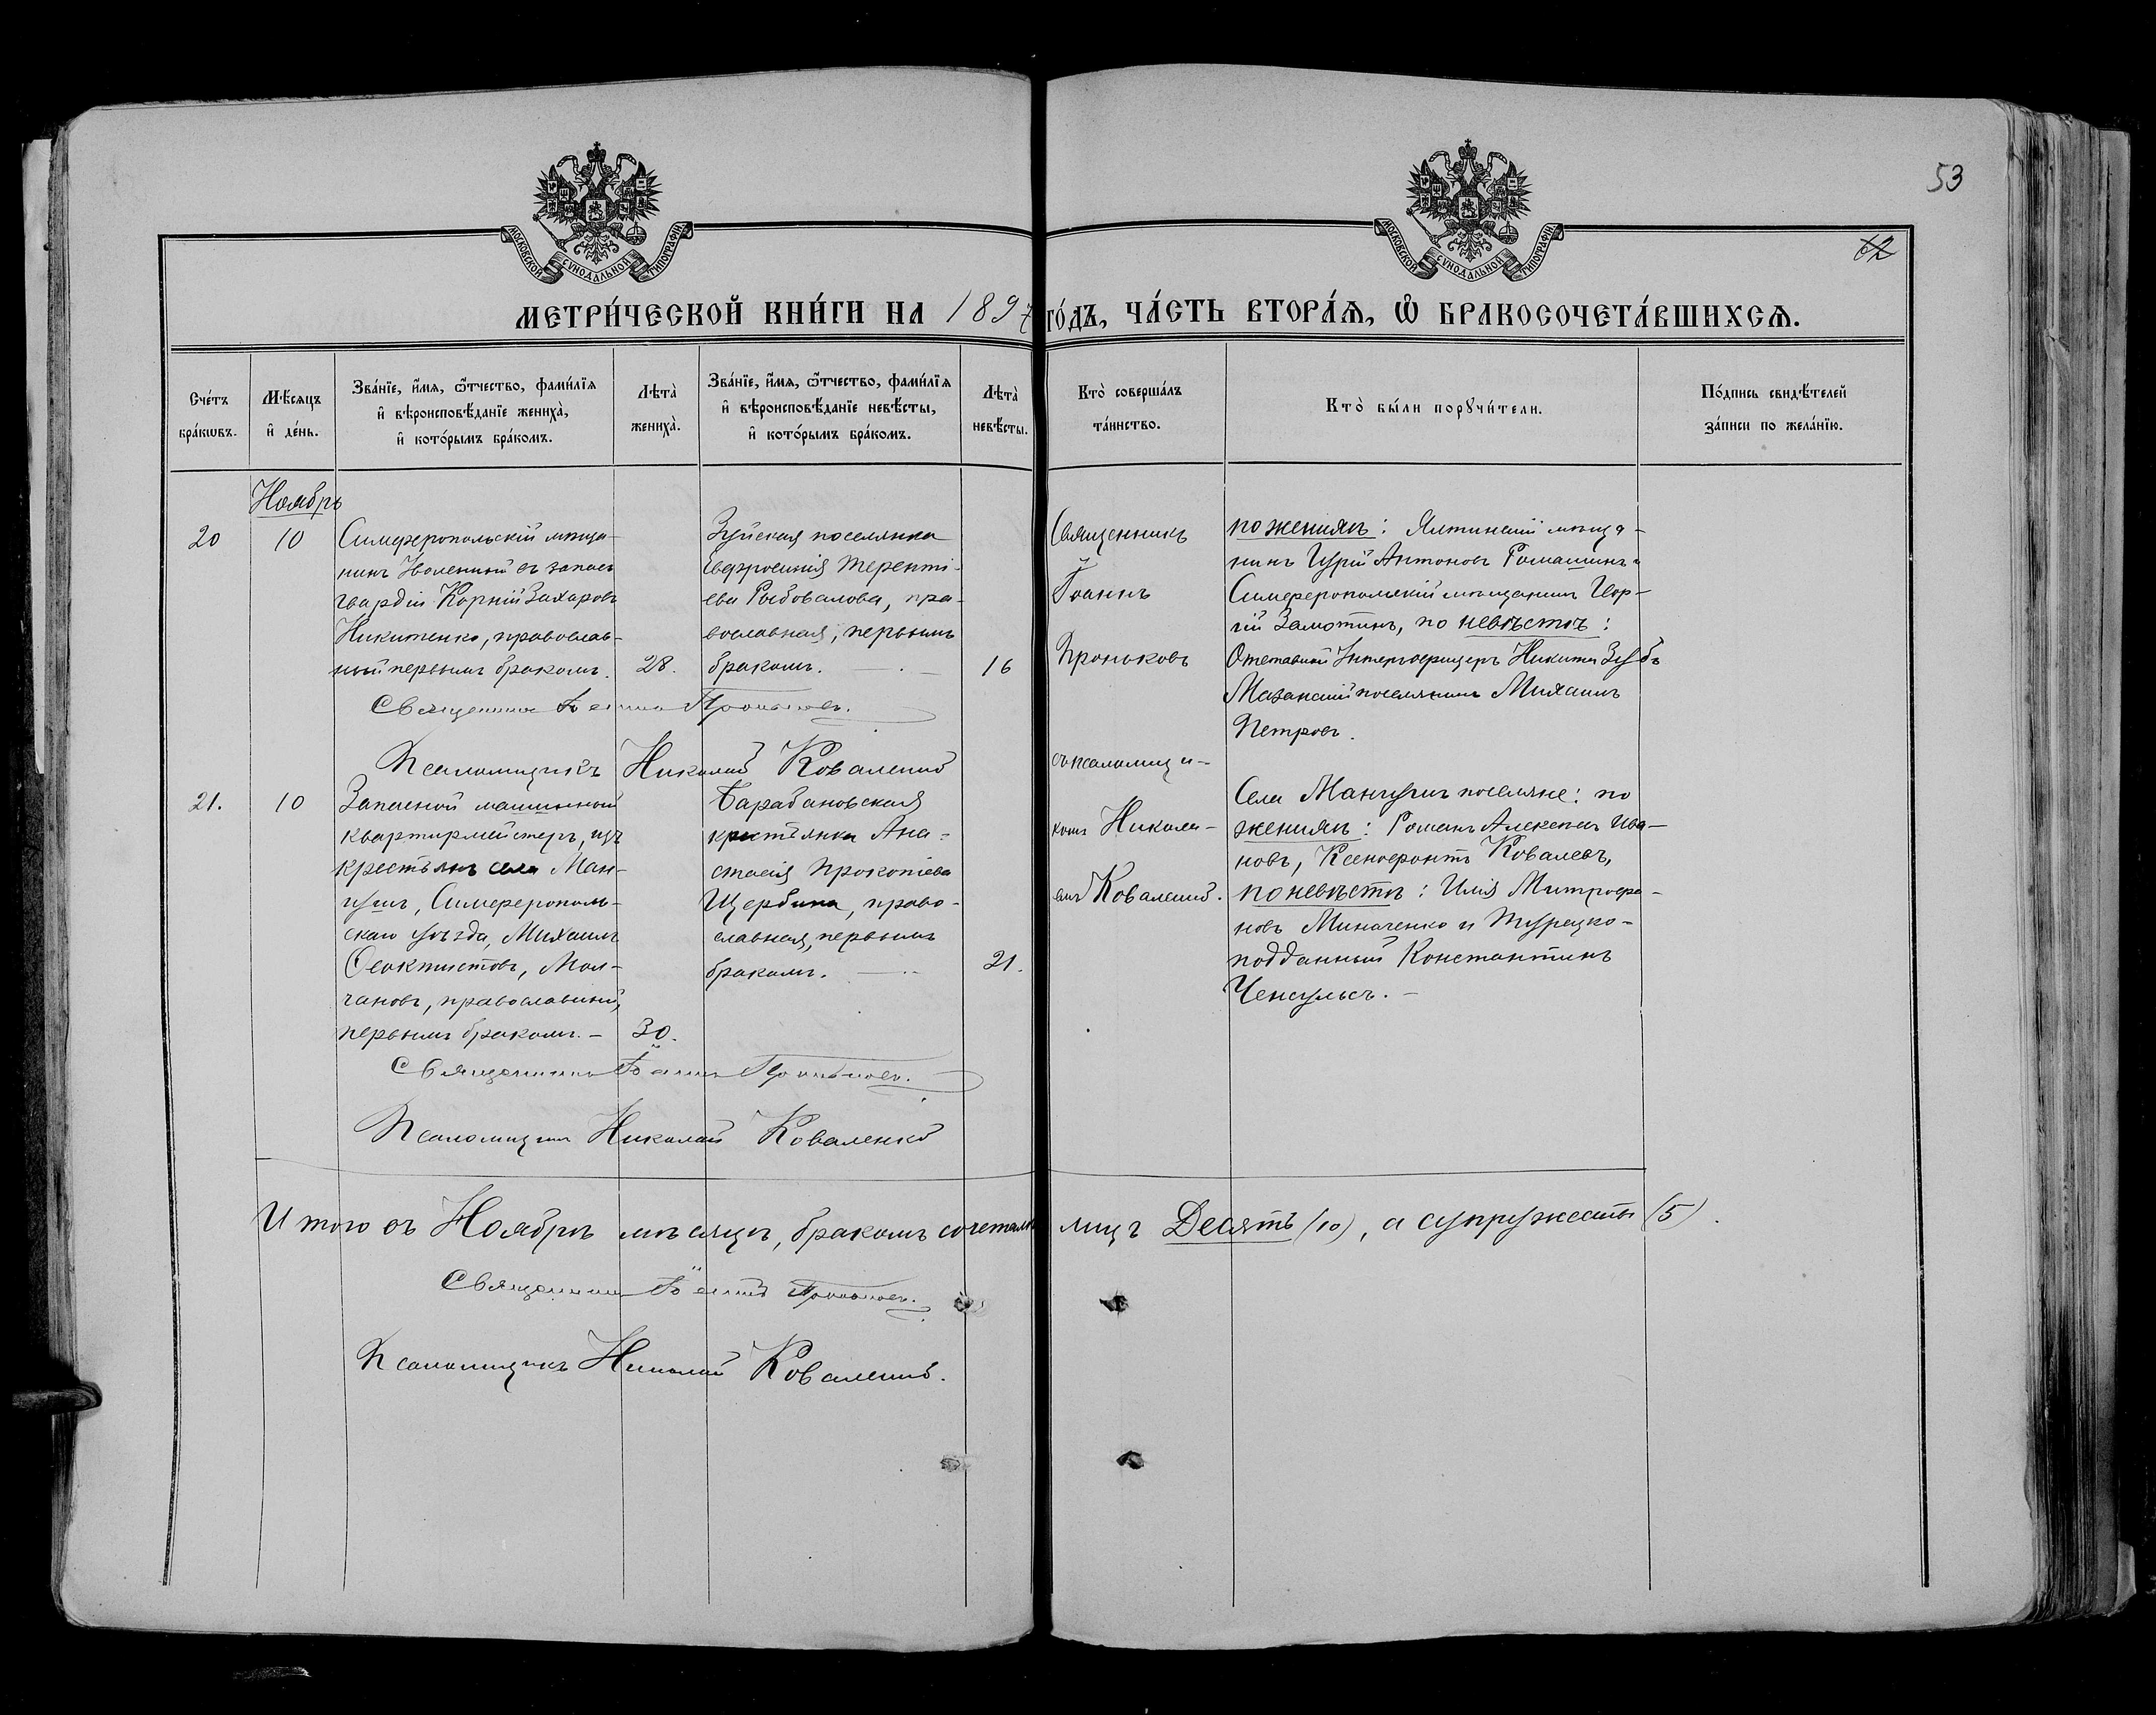 53
62
МОСКОВСКОЙ СѴНОДАЛЬНОЙ ТИПОГРАФІИ
МОСКОВСКОЙ СѴНОДАЛЬНОЙ ТИПОГРАФІИ
МЕТРИ́ЧЕСКОЙ КНИ́ГИ НА 1897 ГО́ДЪ, ЧА́СТЬ ВТОРА́Я, Ѡ БРАКОСОЧЕТА́ВШИХСЯ.
Сче́тъ
бра́кѡвъ.
Мѣ́сяцъ
и҆ де́нь.
Зва́нїе, и҆́мя, ѻ҆́тчество, фами́лїя
и҆ вѣроисповѣ́данїе жениха̀,
и҆ кото́рымъ бра́комъ.
Лѣта̀
жениха̀.
Зва́нїе, и҆́мя, ѻ҆́тчество, фами́лїя
и҆ вѣроисповѣ́данїе невѣ́сты,
и҆ кото́рымъ бра́комъ.
Лѣта̀
невѣ́сты.
Кто̀ соверша́лъ
та́инство.
Кто̀ бы́ли порꙋчи́тели.
По́дпись свидѣ́телей
за́писи по жела́нїю.
Ноябрь
20
10
Симферопольскій мѣща-
нинъ Уволенный въ запасъ
гвардіи Корній Захаровъ
Никитенко, православ-
ный первымъ бракомъ.
28.
Зуйская поселянка
Евфросинія Теренті-
ева Рыбовалова, пра-
вославная, первымъ
бракомъ.
16
Священникъ
Іоаннъ
Проньковъ
съ псаломщи-
комъ Никола-
емъ Коваленко.
по женихѣ: Ялтинскій мѣща-
нинъ Гурій Антоновъ Ромашинъ и
Симферопольскій мѣщанинъ Геор-
гій Замотинъ, по невѣстѣ:
Отставной Унтерофицеръ Никита Зубъ
Мазанскій поселянинъ Михаилъ
Петровъ.
Священникъ Іоаннъ Проньковъ.
Псаломщикъ Николай Коваленко
21.
10
Запасной машинный
квартирмейстеръ, изъ
крестьянъ села Ман-
гушъ, Симферополь-
скаго уѣзда, Михаилъ
Ѳеоктистовъ, Мол-
чановъ, православный,
первымъ бракомъ. –
30.
Барабановская
крестьянка Ана-
стасія Прокопіева
Щербина, право-
славная, первымъ
бракомъ.
21.
Села Мангушъ поселяне: по
женихѣ: Романъ Алексѣевъ Ива-
новъ, Ксенофонтъ Ковалевъ,
по невѣстѣ: Илія Митрофа-
новъ Миначенко и Турецко-
подданный Константинъ
Ченгульсъ. –
Священникъ Іоаннъ Проньковъ.
Псаломщикъ Николай Коваленко
Итого въ Ноябрѣ мѣсяцѣ, бракомъ сочеталось лицъ Десять (10), а супружествъ (5).
Священникъ Іоаннъ Проньковъ.
Псаломщикъ Николай Коваленко.